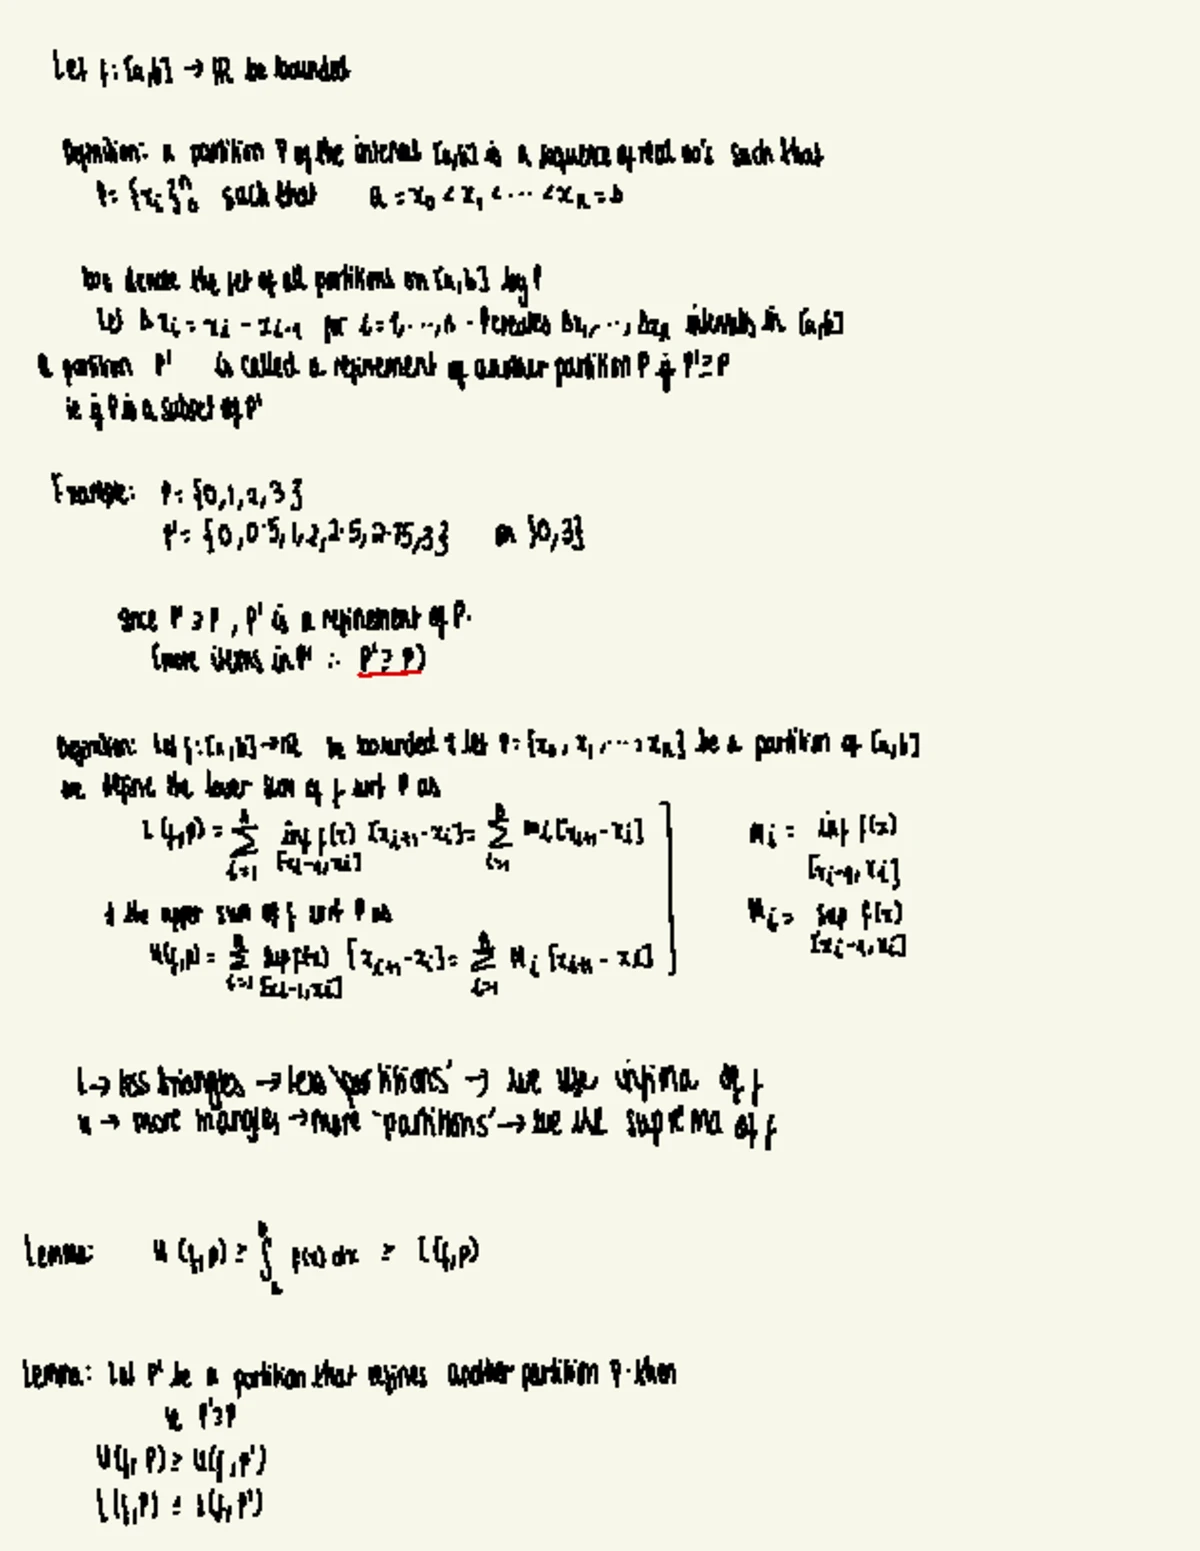 Let f: [a,b] → ℝ be bounded
Definition: a partition P of the interval [a,b] is a sequence of real no's such that
P = {x_i}^n_0 such that a = x_0 < x_1 < ... < x_n = b
We denote the set of all partitions on [a,b] by P
Let Δx_i = x_i - x_{i-1} for i = 1,...,n. P creates Δx_1,..., Δx_n intervals in [a,b]
A partition P' is called a refinement of another partition P if P' ⊇ P
ie if P is a subset of P'
Example: P = {0,1,2,3}
P' = {0,0.5,1,2,2.5,2.75,3} on [0,3]
Since P' ⊇ P, P' is a refinement of P.
(more items in P' ∴ P' ⊇ P)
Definition: Let f: [a,b] → ℝ be bounded & let P = {x_0, x_1,..., x_n} be a partition of [a,b]
we define the lower sum of f wrt P as
L(f,P) = Σ_{i=1}^n inf f(x) [x_{i+1} - x_i] = Σ_{i=1}^n m_i [x_{i+1} - x_i] m_i = inf f(x)
[x_{i-1}, x_i] [x_{i-1}, x_i]
& the upper sum of f wrt P as M_i = sup f(x)
U(f,P) = Σ_{i=1}^n sup f(x) [x_{i+1} - x_i] = Σ_{i=1}^n M_i [x_{i+1} - x_i] [x_{i-1}, x_i]
[x_{i-1}, x_i]
L → less triangles → less 'partitions' → we use infima of f
U → more triangles → more 'partitions' → we use suprema of f
Lemma: U(f,P) ≥ ∫_a^b f(x) dx ≥ L(f,P)
Lemma: Let P' be a partition that refines another partition P. then
ie P' ⊇ P
U(f,P) ≥ U(f,P')
L(f,P) ≤ L(f,P')